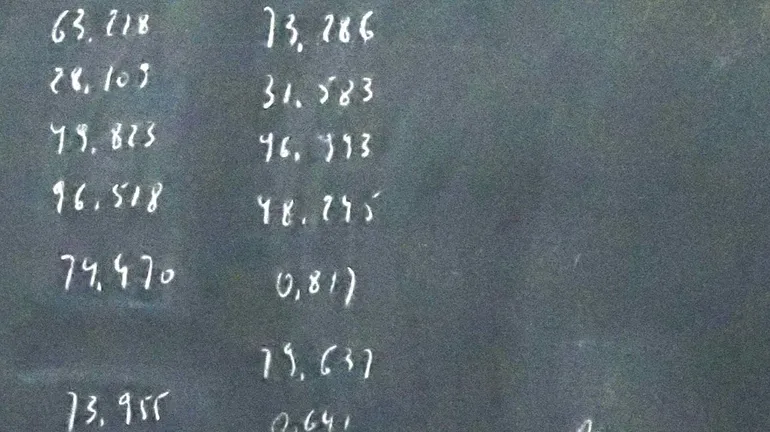 63.218 73.286
28.109 31.583
49.823 46.993
96.518 48.245
74.470 0.817
79.637
73.955 0.641